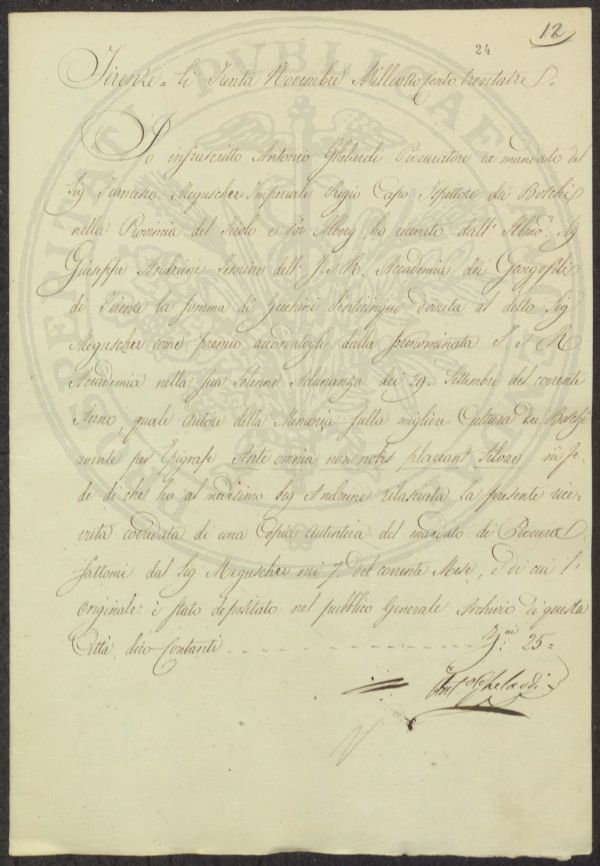 12
24
Firenze = li Trenta Novembre Milleottocento trentatre
Io infrascritto Antonio Ghelardi Procuratore ex mandato del
Sig Francesco Meguscher Imperiale Regio Capo Ispettore dei Boschi
nella Provincia del Tirolo e Vor Alberg ho ricevuto dall' Illmo. Sig
Giuseppe Andreini Tesoriere dell' I. e R. Accademia dei Georgofili
di Firenze la somma di Zecchini Venticinque dovuta al detto Sig
Meguscher come premio accordatogli dalla prenominata I. e R
Accademia nella sua Solenne Adunanza dei 29. Settembre del corrente
Anno, quale autore della Memoria sulla migliore Cultura dei Boschi
avente per Epigrafe Ante omnia non nobis placeant Silvae in fe-
de di che ho al medesimo Sig Andreini rilasciata la presente rice-
vuta corredata di una Copia autentica del mandato di Procura
fattomi dal Sig Meguscher nei 7. del corrente Mese, e di cui l'
originale è stato depositato nel pubblico Generale Archivio di questa
Città dico Contanti Z.ni 25 =
Ant.o Ghelardi
PROSPERITATI PVBLICAE